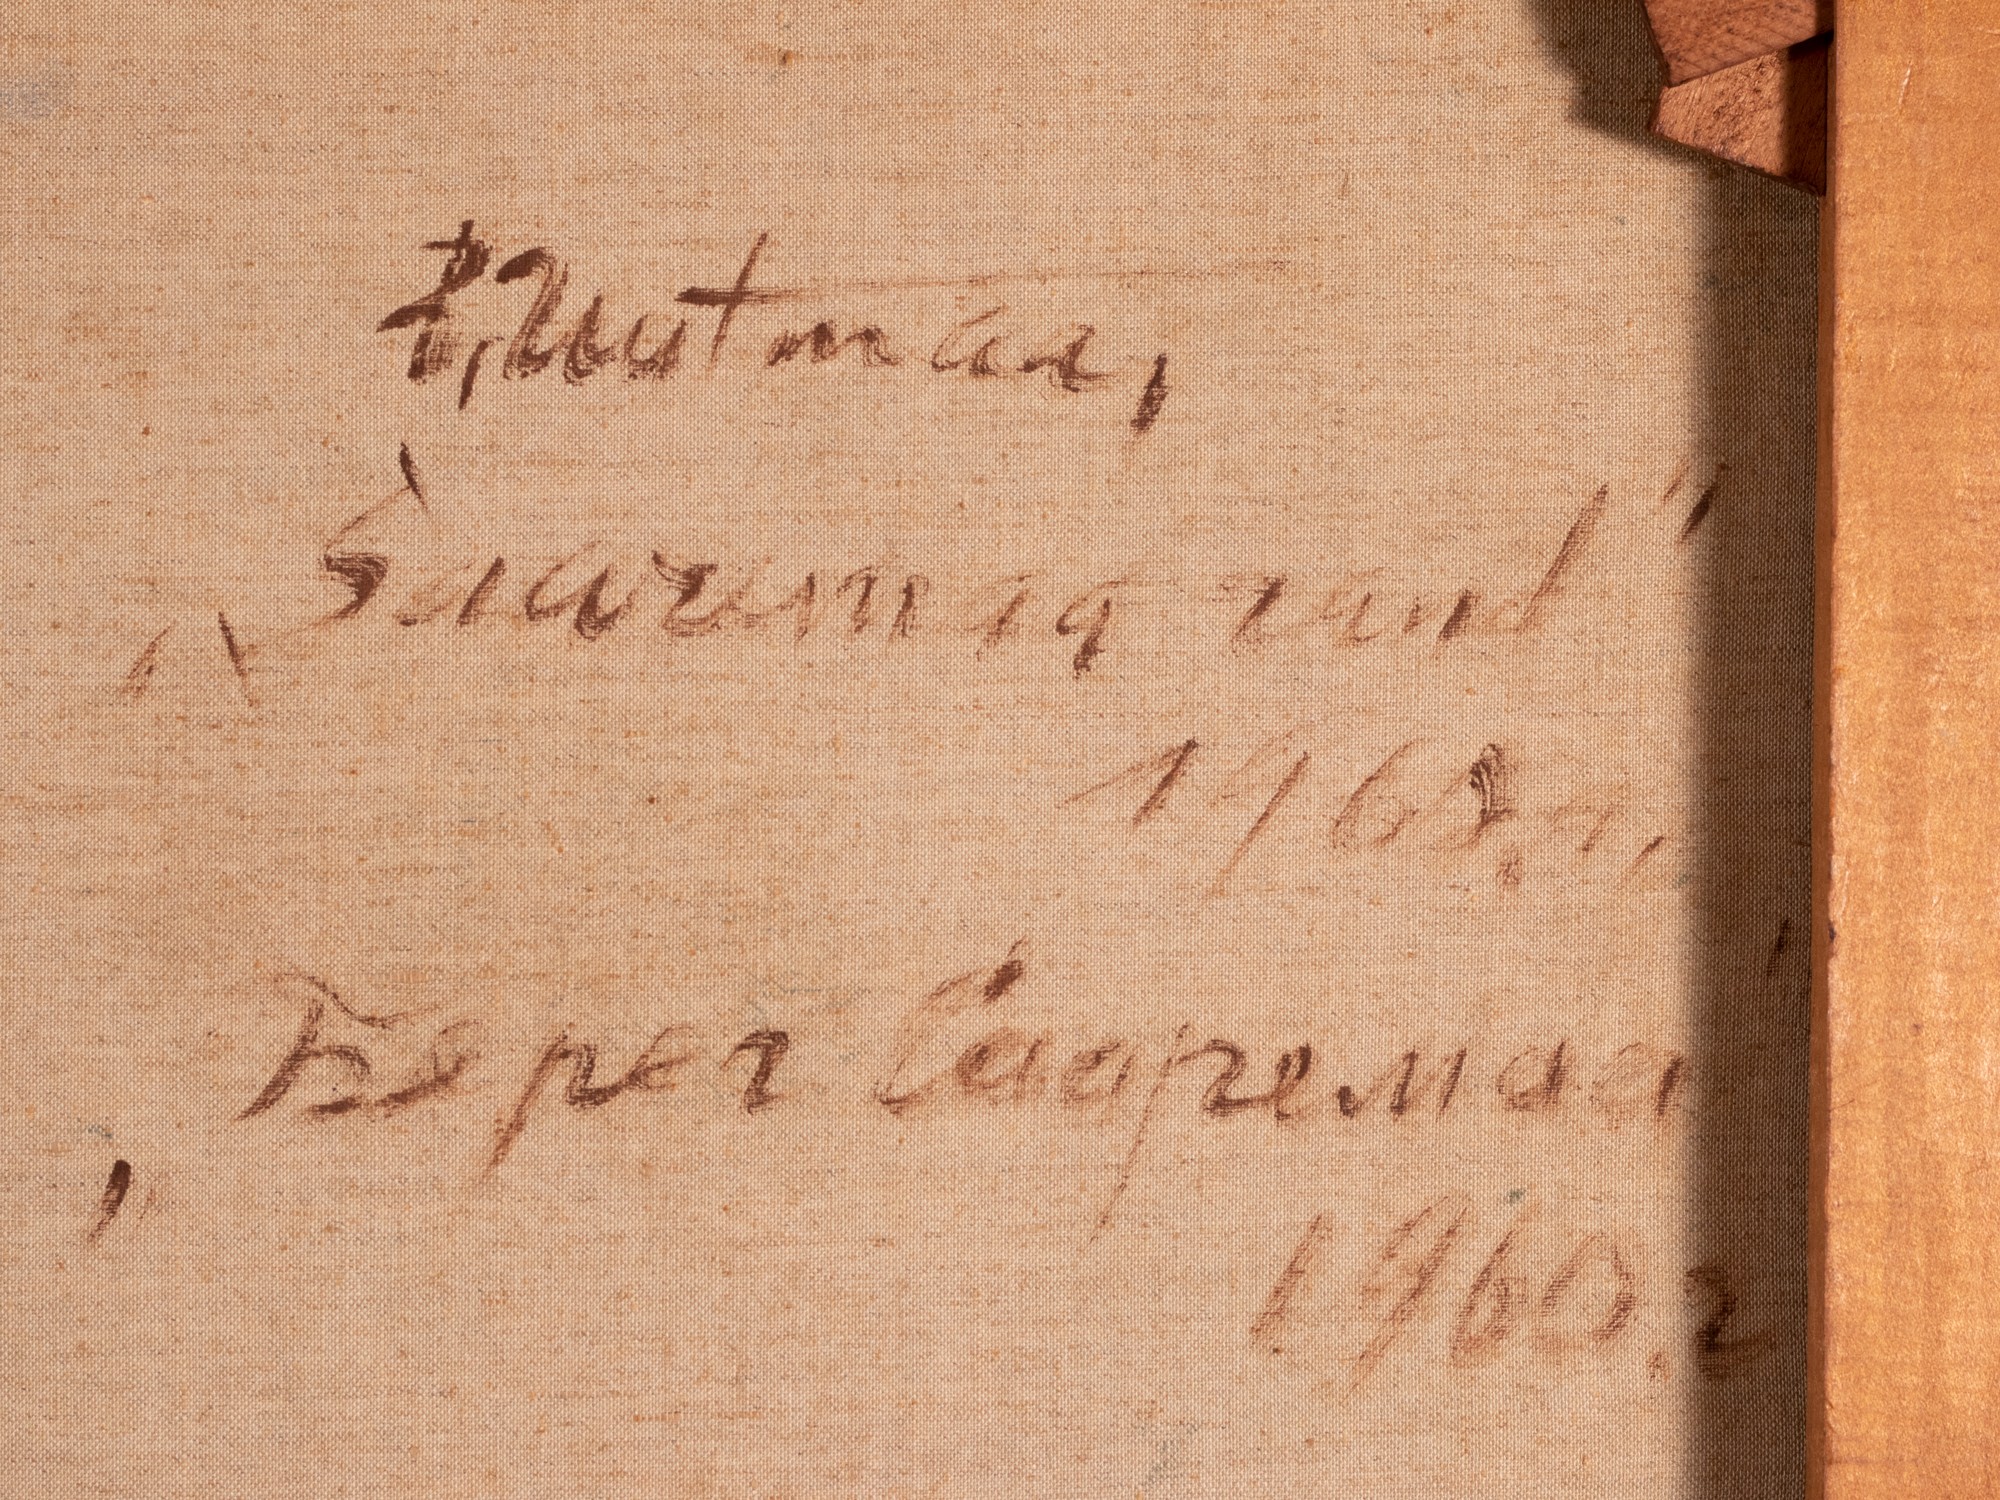 R. Uutmaa,
„Saaremaa rand"
1960. a.
„Берег Сааремаа"
1960. г